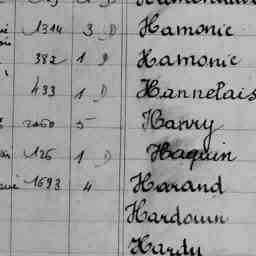 1314 3 D Hamonic
382 1 D Hamonic
433 1 D Hannelais
2060 5 Hanry
126 1 D Haquin
1693 4 Harand
Hardouin
Hardy